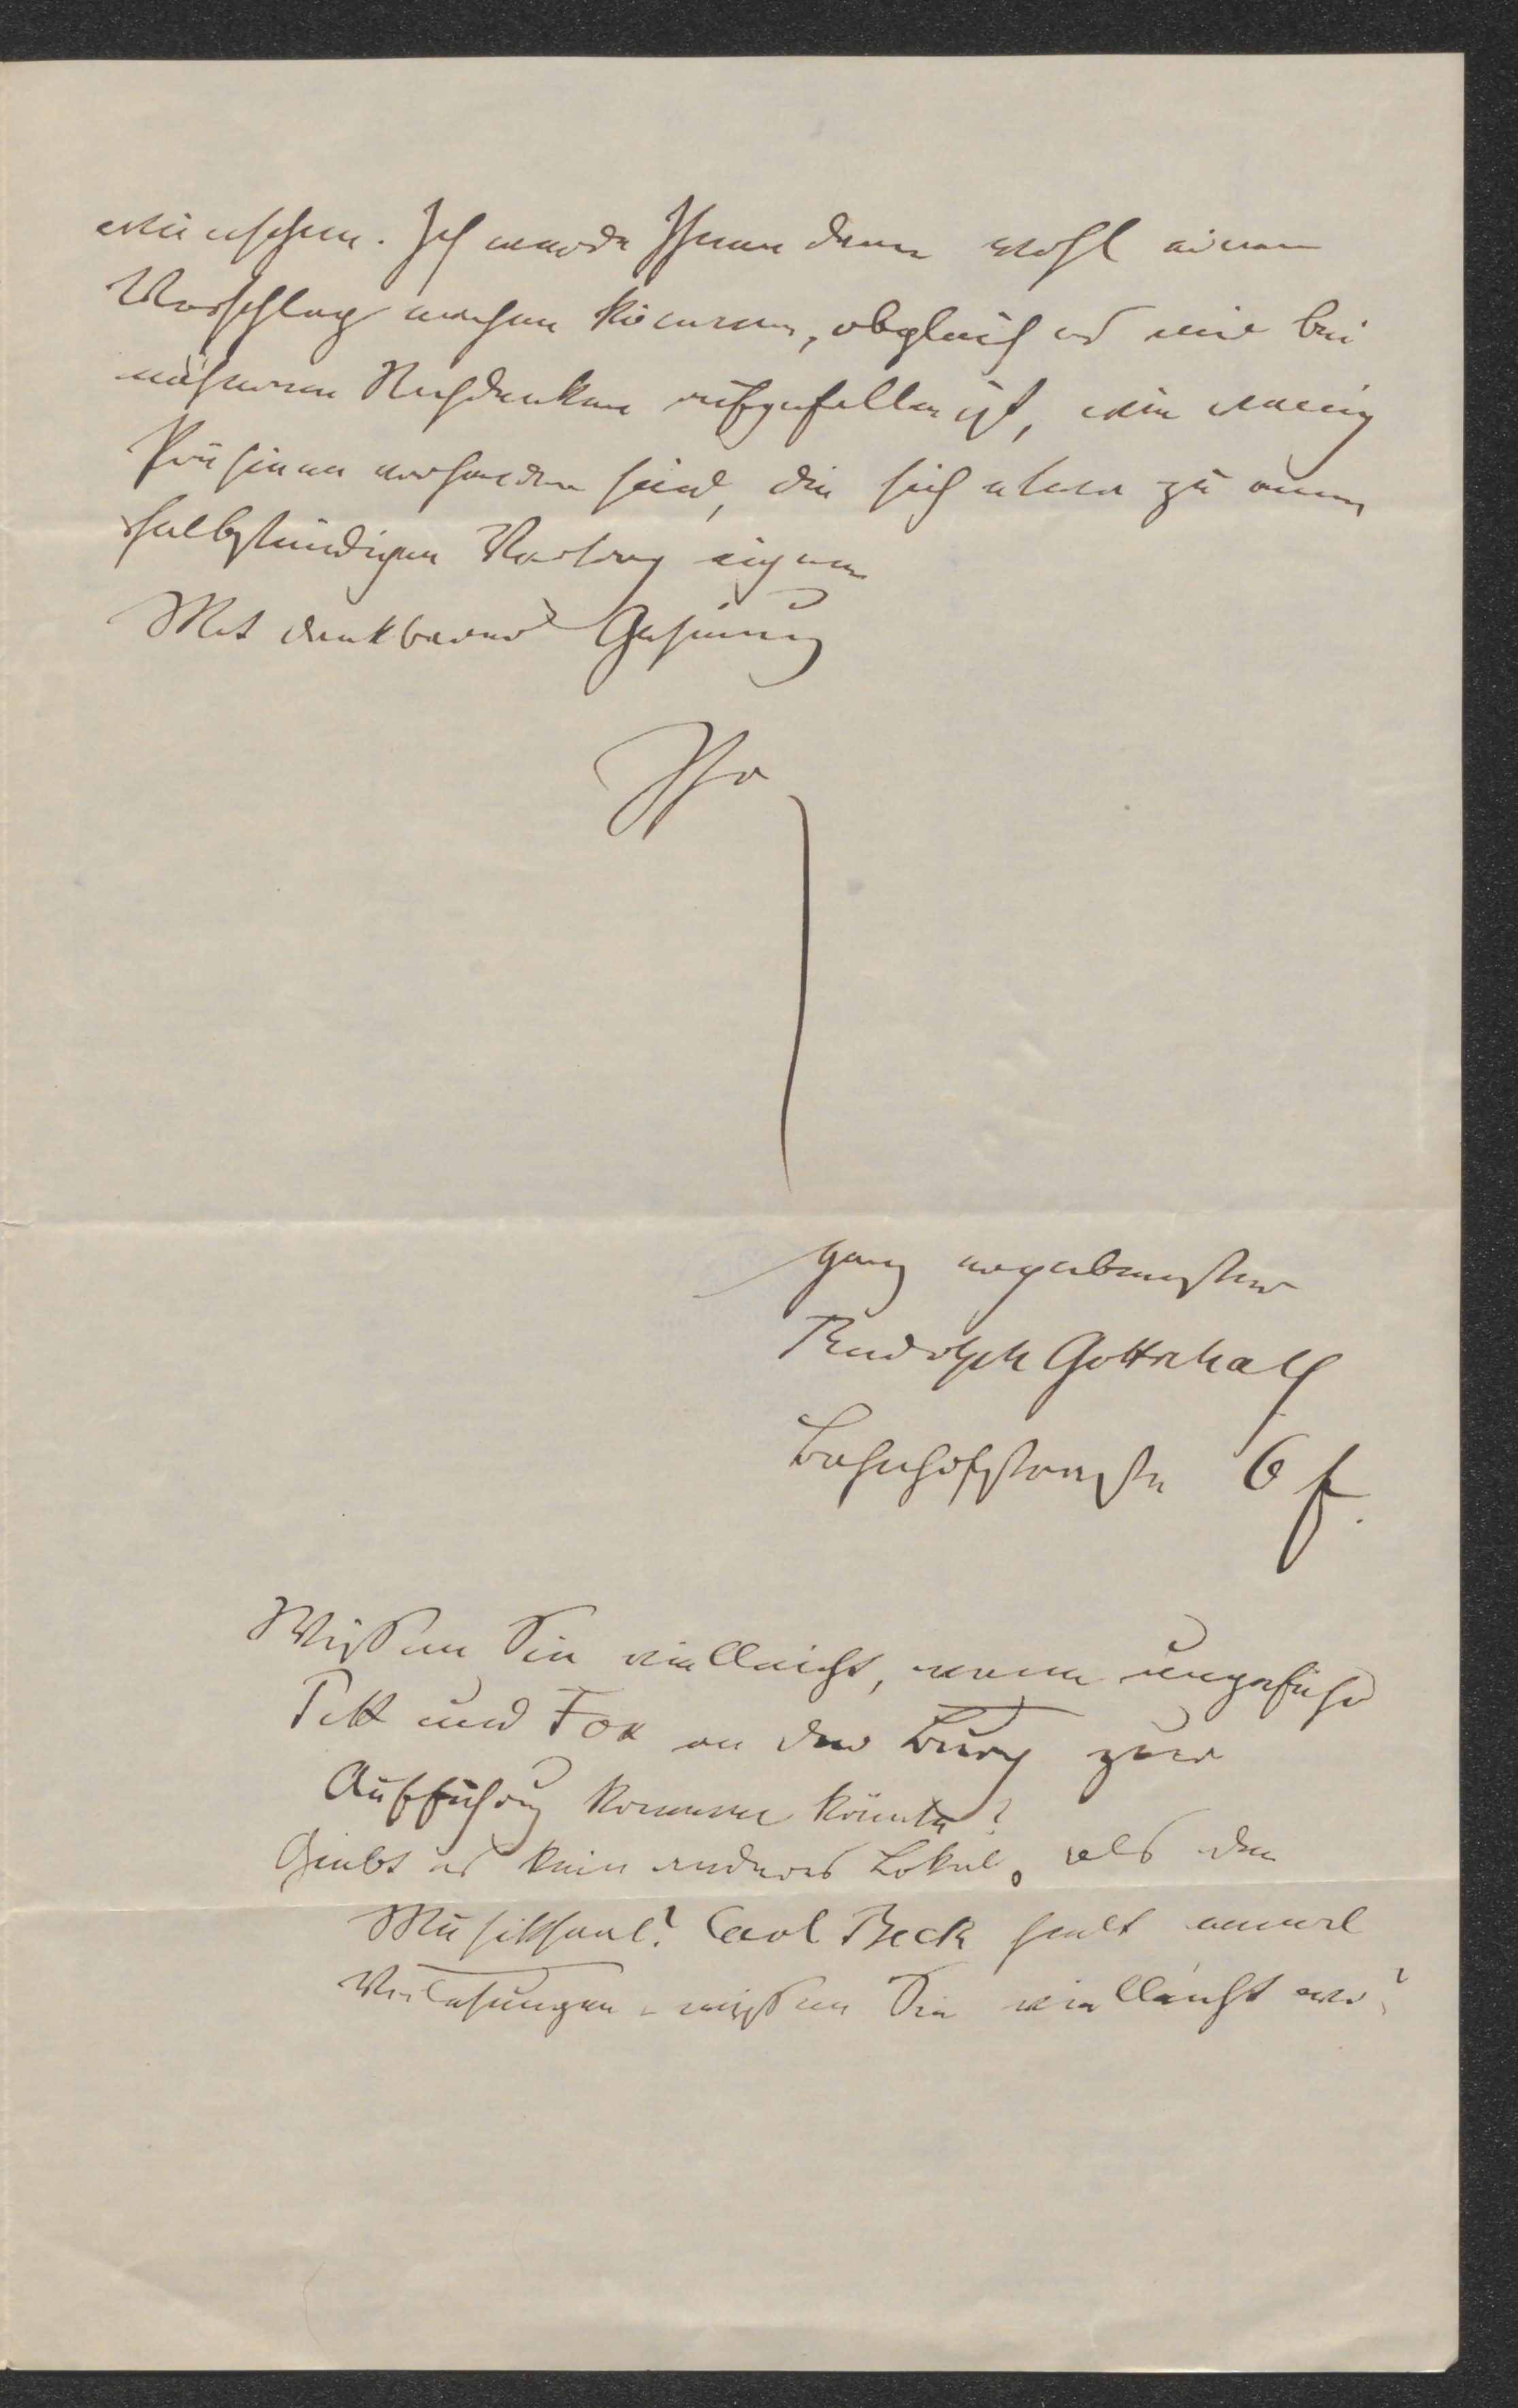 wünschen. Ich werde Ihnen dann wohl einen
Vorschlag machen können, obgleich es mir bei
näherem Nachdenken aufgefallen ist, wie wenig
vorhanden sind, die sich eben zu einem
selbständigen Vortrag eignen
Mit dankbarer Gesinnung
Ihr
ganz ergebenster
Rudolph Gottschall
Bahnhofstraße 6 f.
Wissen Sie vielleicht, wann ungefähr
Pitt und Fox an der Burg zur
Aufführung kommen könnte?
Giebt es kein anderes Lokal, als den
Musiksaal? Carl Beck hielt einmal
Vorlesungen – wissen Sie vielleicht wo?